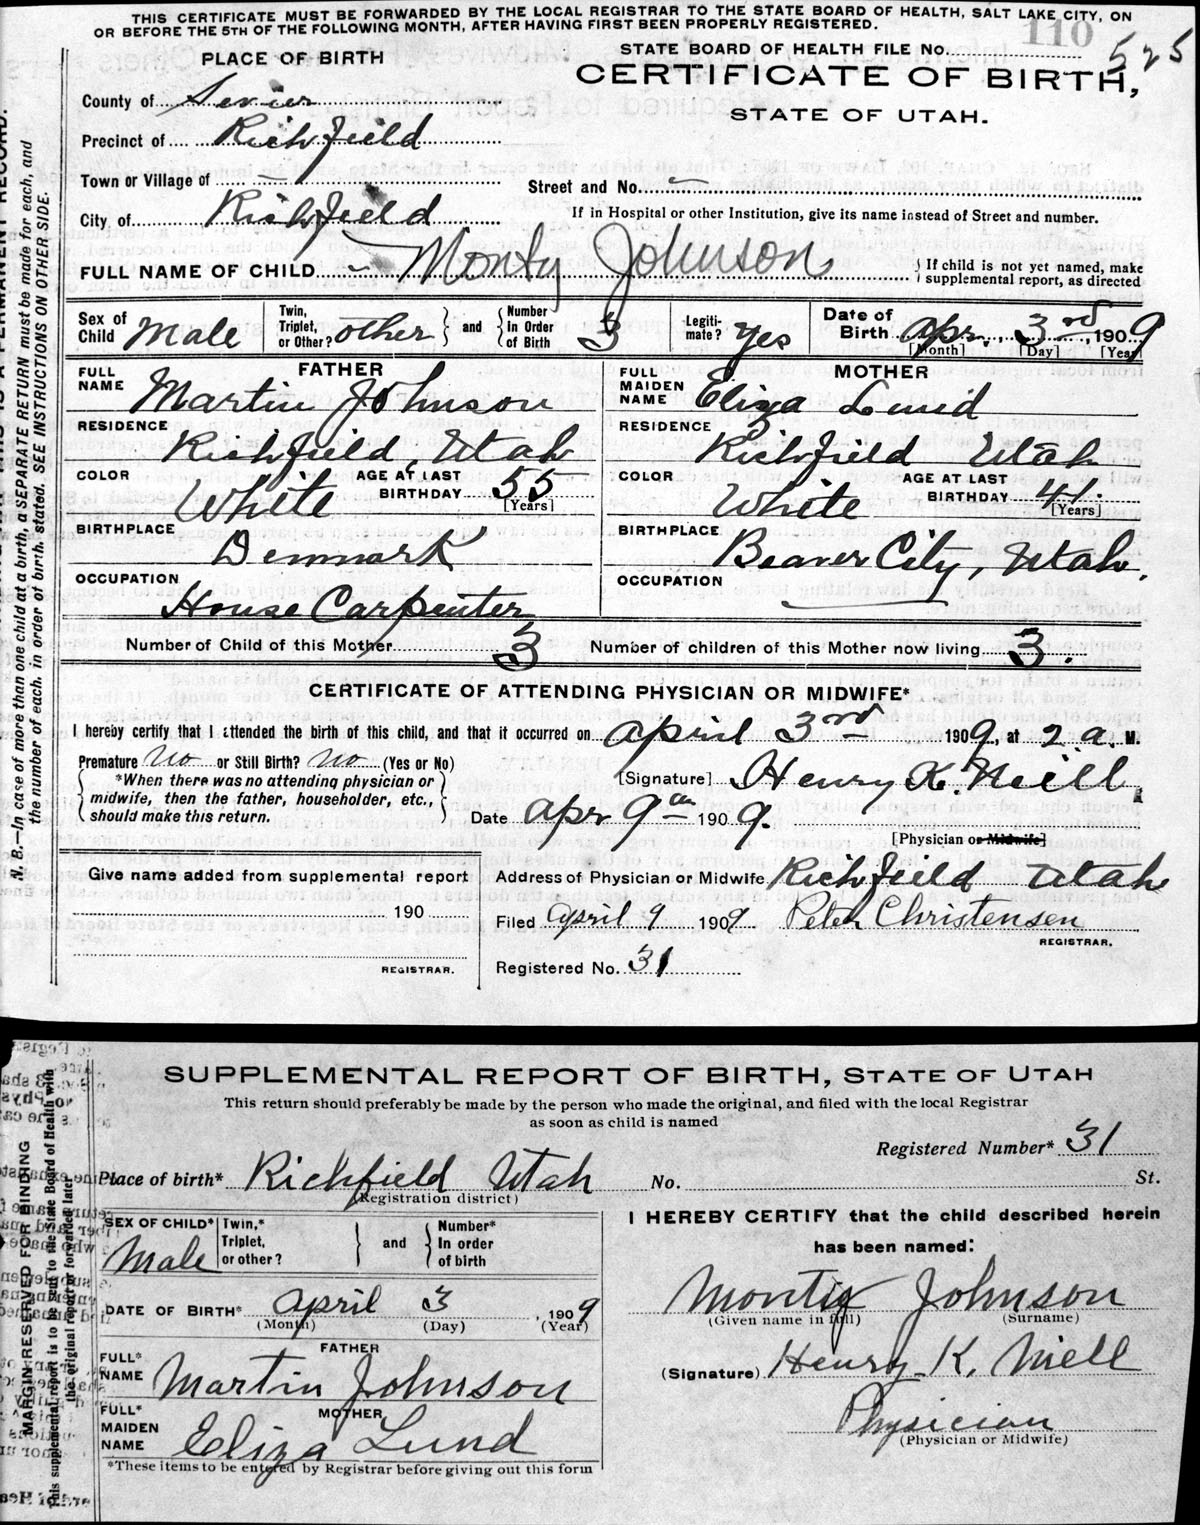 THIS CERTIFICATE MUST BE FORWARDED BY THE LOCAL REGISTRAR TO THE STATE BOARD OF HEALTH, SALT LAKE CITY, ON
OR BEFORE THE 5TH OF THE FOLLOWING MONTH, AFTER HAVING FIRST BEEN PROPERLY REGISTERED.
110
PLACE OF BIRTH
STATE BOARD OF HEALTH FILE No. 525
CERTIFICATE OF BIRTH,
STATE OF UTAH.
County of Sevier
Precinct of Richfield
Town or Village of —
Street and No. —
City of Richfield
If in Hospital or other Institution, give its name instead of Street and number.
FULL NAME OF CHILD — Monty Johnson
{ If child is not yet named, make
supplemental report, as directed
Sex of Child Male
Twin, Triplet, or Other? other } and { Number In Order of Birth 3
Legitimate? yes
Date of Birth Apr. 3rd, 1909
[Month] [Day] [Year]
FATHER
FULL NAME Martin Johnson
RESIDENCE Richfield, Utah
COLOR White AGE AT LAST BIRTHDAY 55
[Years]
BIRTHPLACE Denmark
OCCUPATION House Carpenter
MOTHER
FULL MAIDEN NAME Eliza Lund
RESIDENCE Richfield Utah
COLOR White AGE AT LAST BIRTHDAY 41.
[Years]
BIRTHPLACE Beaver City, Utah.
OCCUPATION ——
Number of Child of this Mother 3 Number of children of this Mother now living 3.
CERTIFICATE OF ATTENDING PHYSICIAN OR MIDWIFE*
I hereby certify that I attended the birth of this child, and that it occurred on April 3rd 1909, at 2 a. M.
Premature No or Still Birth? No (Yes or No)
{ *When there was no attending physician or
midwife, then the father, householder, etc.,
should make this return. }
[Signature] Henry K. Neill
Date Apr 9th 1909.
[Physician or Midwife]
Give name added from supplemental report
190
REGISTRAR.
Address of Physician or Midwife Richfield Utah
Filed April 9 1909 Peter Christensen
REGISTRAR.
Registered No. 31
N. B.—In case of more than one child at a birth, a SEPARATE RETURN must be made for each, and
the number of each, in order of birth, stated. SEE INSTRUCTIONS ON OTHER SIDE.
SUPPLEMENTAL REPORT OF BIRTH, STATE OF UTAH
This return should preferably be made by the person who made the original, and filed with the local Registrar
as soon as child is named
Registered Number* 31
Place of birth* Richfield Utah No. St.
(Registration district)
SEX OF CHILD* Male
Twin,* Triplet, or other? } and { Number* In order of birth
DATE OF BIRTH* April 3, 1909
(Month) (Day) (Year)
FATHER
FULL* NAME Martin Johnson
MOTHER
FULL* MAIDEN NAME Eliza Lund
*These items to be entered by Registrar before giving out this form
I HEREBY CERTIFY that the child described herein
has been named:
Johnson
(Given name in full) (Surname)
(Signature) Henry K. Niell
Physician
(Physician or Midwife)
MARGIN RESERVED FOR BINDING
This supplemental report is to be sent to the State Board of Health with
the original report or forwarded later